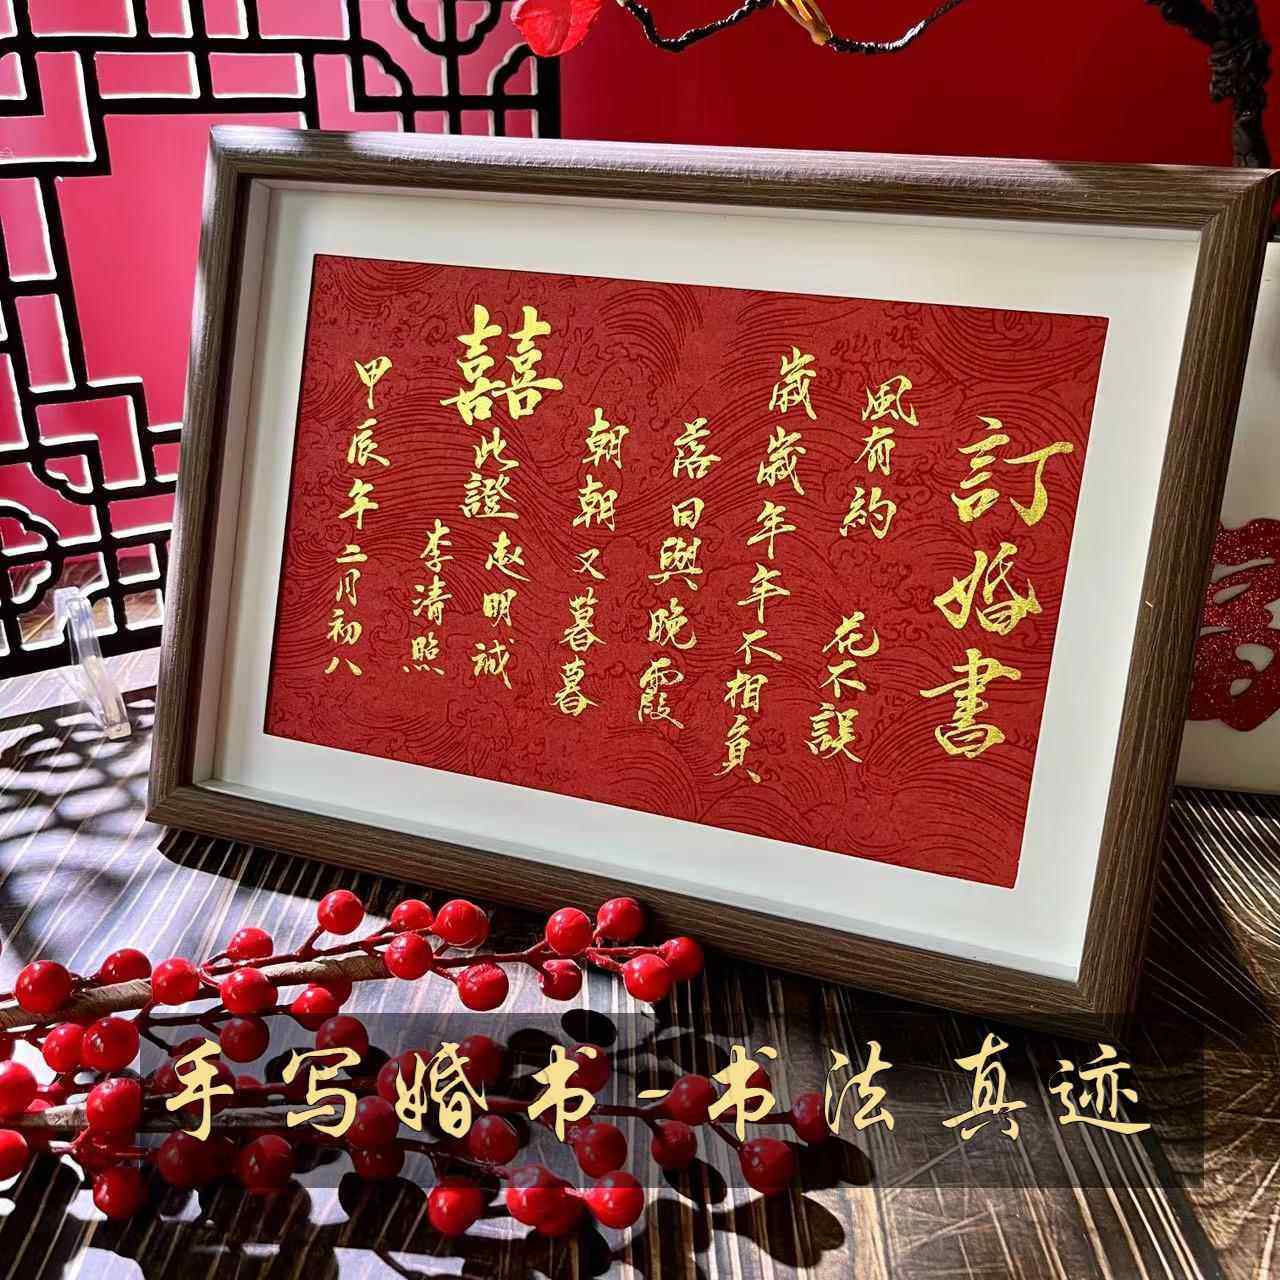 訂婚書
風有約 花不誤
歲歲年年不相負
落日與晚霞
朝朝又暮暮
囍此證
赵明誠
李清照
甲辰年二月初八
手写婚书-书法真迹